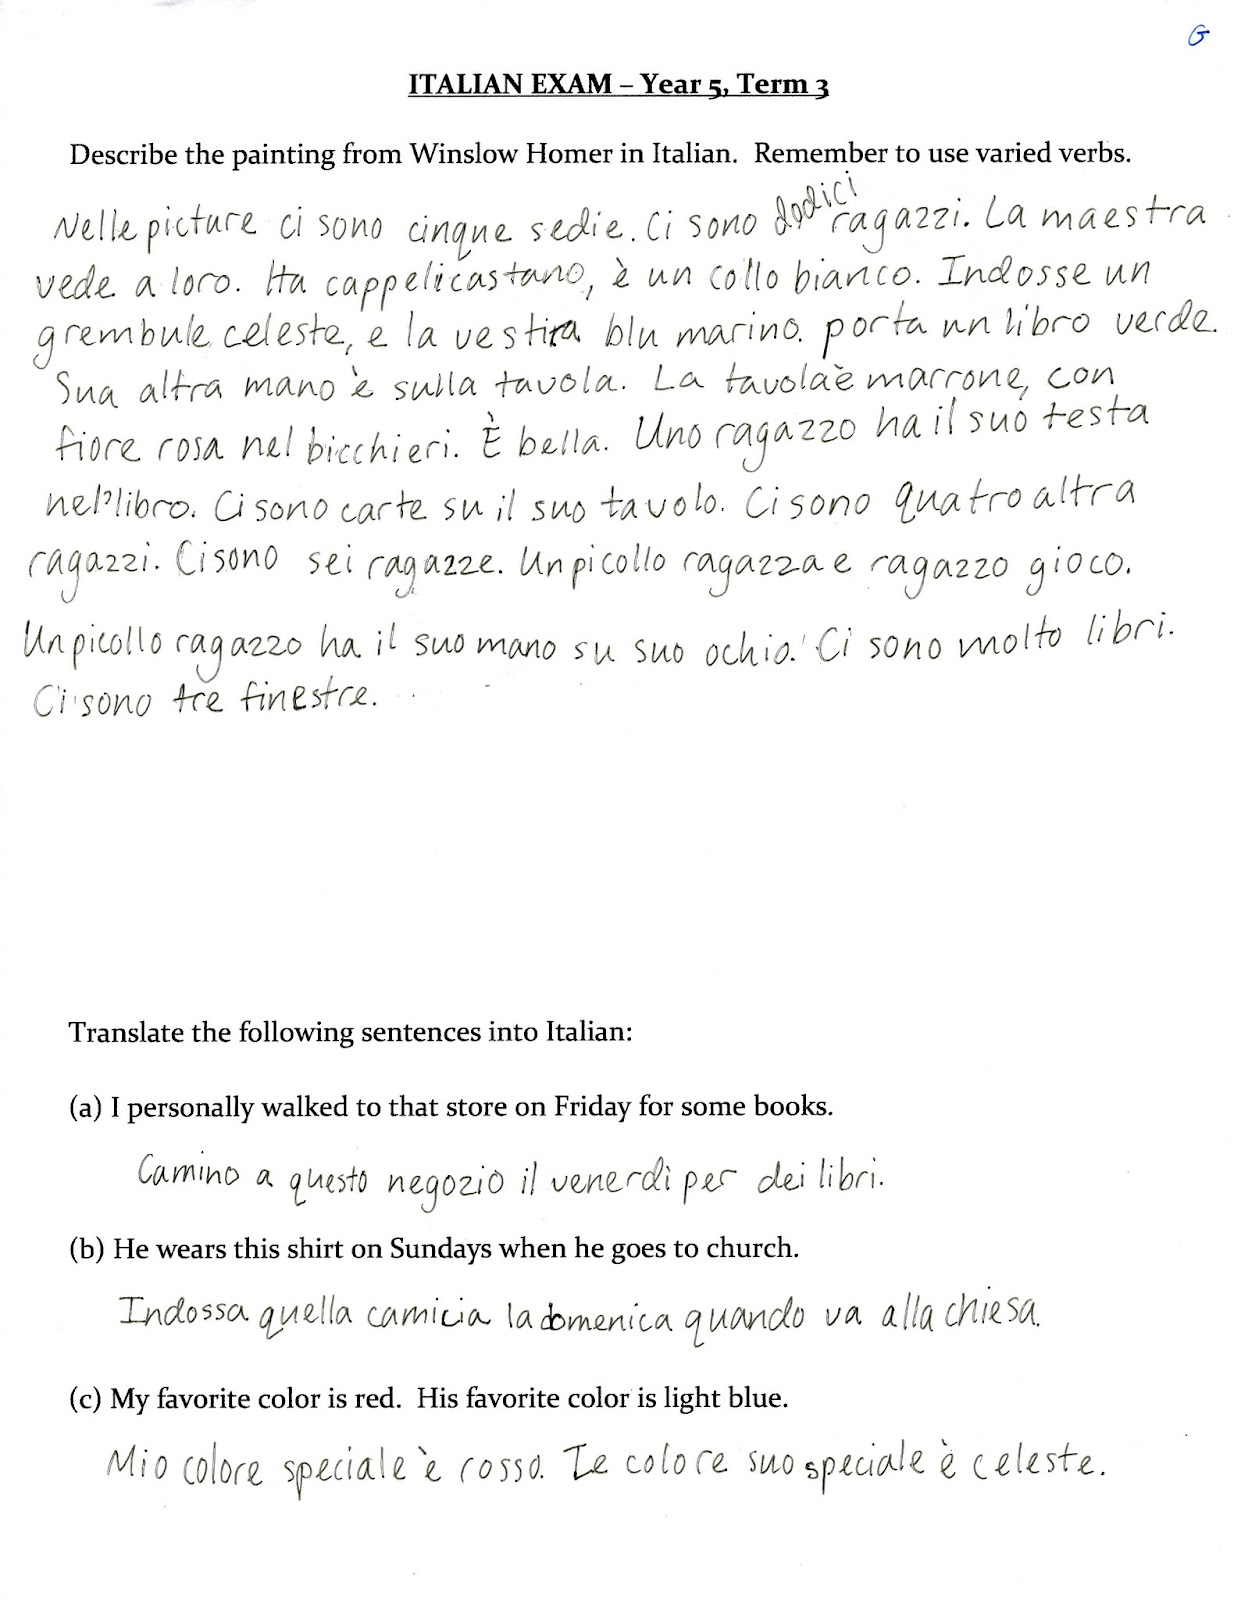 G
ITALIAN EXAM – Year 5, Term 3
Describe the painting from Winslow Homer in Italian. Remember to use varied verbs.
Nelle picture ci sono cinque sedie. Ci sono dodici ragazzi. La maestra
vede a loro. Ha cappeli castano, è un collo bianco. Indosse un
grembule celeste, e la vestira blu marino. porta un libro verde.
Sua altra mano è sulla tavola. La tavola è marrone, con
fiore rosa nel bicchieri. È bella. Uno ragazzo ha il suo testa
nel'libro. Ci sono carte su il suo tavolo. Ci sono quatro altra
ragazzi. Ci sono sei ragazze. Un picollo ragazza e ragazzo gioco.
Un picollo ragazzo ha il suo mano su suo ochio. Ci sono molto libri.
Ci sono tre finestre.
Translate the following sentences into Italian:
(a) I personally walked to that store on Friday for some books.
Camino a questo negozio il venerdì per dei libri.
(b) He wears this shirt on Sundays when he goes to church.
Indossa quella camicia la domenica quando va alla chiesa.
(c) My favorite color is red. His favorite color is light blue.
Mio colore speciale è rosso. Ie colore suo speciale è celeste.